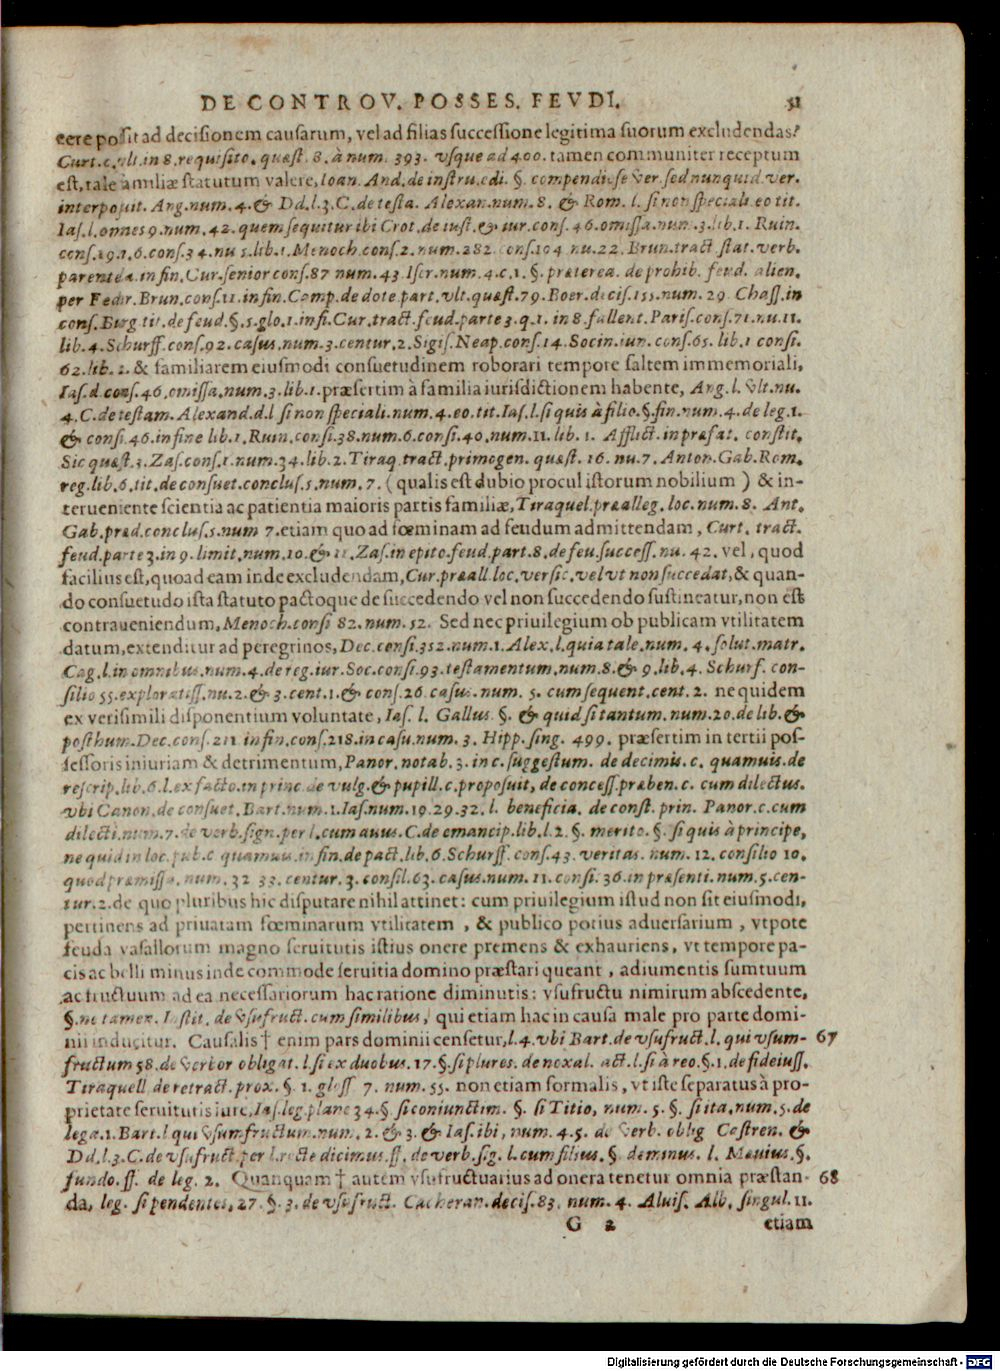 DE CONTROV. POSSES. FEVDI. 51
cere possit ad decisionem causarum, vel ad filias successione legitima suorum excludendas?
Curt. c. vlt. in 8. requisito. quæst. 8. à num. 393. vsque ad 400. tamen communiter receptum
est, tale familiæ statutum valere, Ioan. And. de instru. edi. §. compendiose ver. sed nunquid. ver.
interposuit. Ang. num. 4. & Dd. l. 3. C. de testa. Alexan. num. 8. & Rom. l. si non speciali. eo tit.
Ias. l. omnes 9. num. 42. quem sequitur ibi Crot. de iust. & iur. cons. 46. omissa. num. 3. lib. 1. Ruin.
cons. 19. 1. 6. cons. 34. nu 5. lib. 1. Menoch. cons. 2. num. 282. cons. 104 nu. 22. Brun. tract stat. verb.
parentela. in fin. Cur. senior cons. 87 num. 43. Iser. num. 4. c. 1. §. præterea. de prohib. feud. alien.
per Feder. Brun. cons. 11. in fin. Camp. de dote part. vlt. quæst. 79. Boer. decis. 155. num. 29. Chass. in
cons. Burg. tit. de feud. §. 5. glo. 1. infi. Cur. tract. feud. parte 3. q. 1. in 8. fallent. Paris. cons. 71. nu. 11.
lib. 4. Schurff. cons. 92. casus. num. 3. centur. 2. Sigis. Neap. cons. 14. Socin. iun. cons. 65. lib. 1 consi.
62. lib. 2. & familiarem eiusmodi consuetudinem roborari tempore saltem immemoriali,
Ias. d. cons. 46. omissa. num. 3. lib. 1. præsertim à familia iurisdictionem habente, Ang. l. vlt. nu.
4. C. de testam. Alexand. d. l si non speciali. num. 4. eo. tit. Ias. l. si quis à filio. §. fin. num. 4. de leg. 1.
& consi. 46. in fine lib. 1. Ruin. consi. 38. num. 6. consi. 40. num. 11. lib. 1. Afflict. in præfat. constit.
Sic quæst. 3. Zas. cons. 1. num. 34. lib. 2. Tiraq. tract. primogen. quæst. 16. nu. 7. Anton. Gab. Rom.
reg. lib. 6. tit. de consuet. conclus. 5. num. 7. (qualis est dubio procul istorum nobilium) & in-
terueniente scientia ac patientia maioris partis familiæ, Tiraquel. præalleg. loc. num. 8. Ant.
Gab. præd. conclus. 5. num 7. etiam quo ad fœminam ad feudum admittendam, Curt. tract.
feud. parte 3. in 9. limit. num. 10. & 11. Zas. in epito. feud. part. 8. de feu. success. nu. 42. vel, quod
facilius est, quoad eam inde excludendam, Cur. præall. loc. versic. vel vt non succedat, & quan-
do consuetudo ista statuto pactoque de succedendo vel non succedendo sustineatur, non est
contraueniendum, Menoch. consi 82. num. 52. Sed nec priuilegium ob publicam vtilitatem
datum, extenditur ad peregrinos, Dec. consi. 352. num. 1. Alex. l. quia tale. num. 4. solut. matr.
Cag. l. in omnibus. num. 4. de reg. iur. Soc. consi. 93. testamentum. num. 8. & 9. lib. 4. Schurf. con-
silio 55. exploratiss. nu. 2. & 3. cent. 1. & cons. 26. casus. num. 5. cum sequent. cent. 2. ne quidem
ex verisimili disponentium voluntate, Ias. l. Gallus. §. & quid si tantum. num. 20. de lib. &
posthum. Dec. cons. 211 in fin. cons. 218. in casu. num. 3. Hipp. sing. 499. præsertim in tertii pos-
sessoris iniuriam & detrimentum, Panor. notab. 3. in c. suggestum. de decimis. c. quamuis. de
rescrip. lib. 6. l. ex facto. in princ. de vulg. & pupill. c. proposuit, de concess. præben. c. cum dilectus.
vbi Canon. de consuet. Bart. num. 1. Ias. num. 19. 29. 32. l. beneficia. de const. prin. Panor. c. cum
dilecti. num. 7. de verb. sign. per l. cum auus. C. de emancip. lib. l. 2. §. merito. §. si quis à principe,
ne quid in loc. pub. c quamuis. in fin. de pact. lib. 6. Schurff. cons. 43. veritas. num. 12. consilio 10.
quod præmissa. num. 32 33. centur. 3. consil. 63. casus. num. 11. consi. 36. in præsenti. num. 5. cen-
tur. 2. de quo pluribus hic disputare nihil attinet: cum priuilegium istud non sit eiusmodi,
pertinens ad priuatam fœminarum vtilitatem, & publico potius aduersarium, vtpote
feuda vasallorum magno seruitutis istius onere premens & exhauriens, vt tempore pa-
cis ac belli minus inde commode seruitia domino præstari queant, adiumentis sumtuum
ac fructuum ad ea necessariorum hac ratione diminutis: vsufructu nimirum abscedente,
§. ne tamen. Instit. de vsufruct. cum similibus, qui etiam hac in causa male pro parte domi-
nii inducitur. Causalis † enim pars dominii censetur, l. 4. vbi Bart. de vsufruct. l. qui vsum- 67
fructum 58. de verbor obligat. l. si ex duobus. 17. §. si plures. de noxal. act. l. si à reo. §. 1. de fideiuss.
Tiraquell de retract. prox. §. 1. gloss 7. num. 55. non etiam formalis, vt iste separatus à pro-
prietate seruitutis iure, Ias. leg. plane 34. §. si coniunctim. §. si Titio, num. 5. §. si ita, num. 5. de
lega. 1. Bart. l qui vsumfructum. num. 2. & 3. & Ias. ibi, num. 4. 5. de verb. oblig Castren. &
Dd. l. 3. C. de vsufruct. per l. recte dicimus. ff. de verb. sig. l. cum filius, §. deminus. l. Meuius, §.
fundo. ff. de leg. 2. Quanquam † autem vsufructuarius ad onera tenetur omnia præstan- 68
da, leg. si pendentes, 27. §. 3. de vsufruct. Cacheran. decis. 83. num. 4. Aluis. Alb. singul. 11.
G 2 etiam
Digitalisierung gefördert durch die Deutsche Forschungsgemeinschaft - DFG